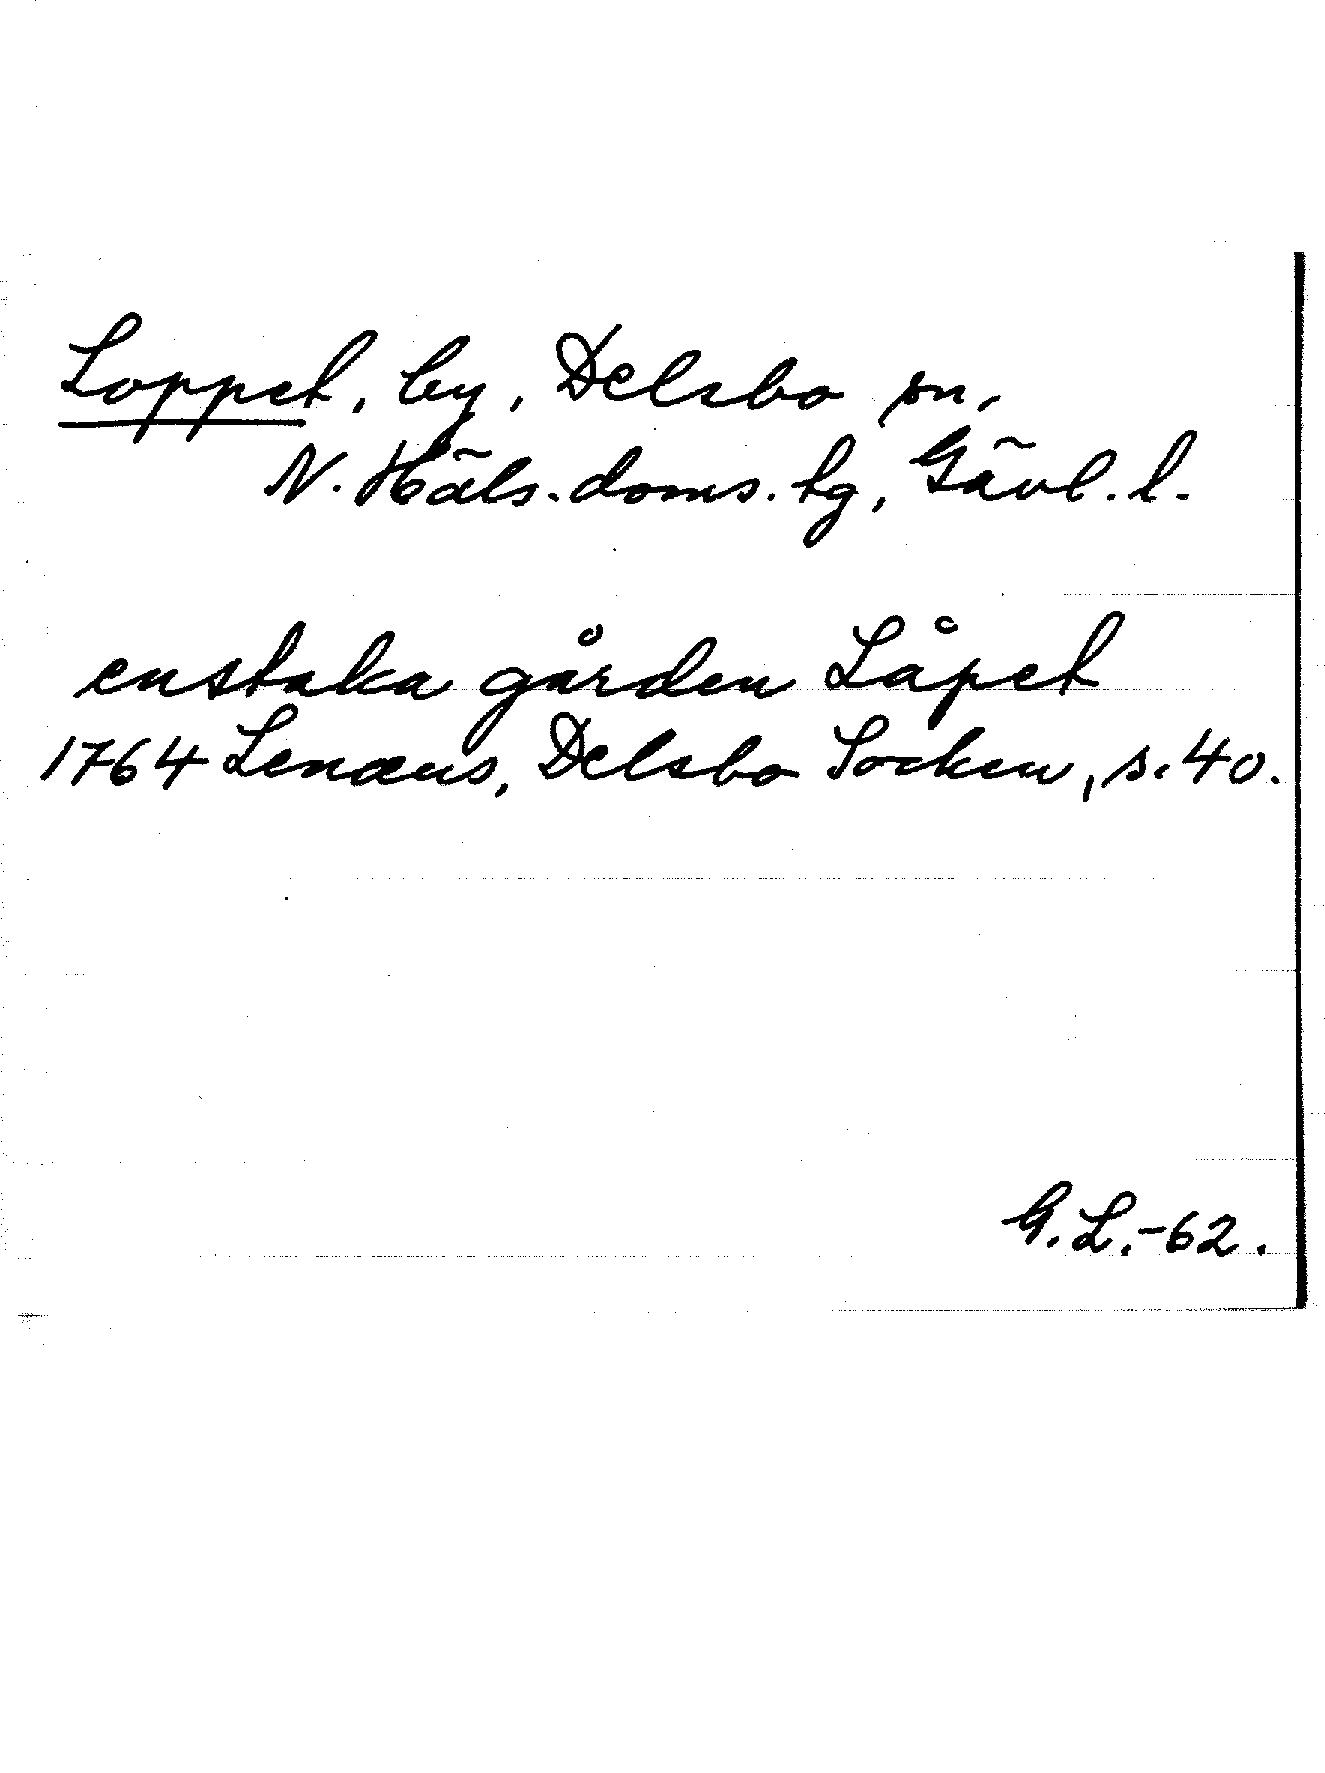 Loppet, by, Delsbo sn,
N. Häls. doms. hg, Gävl. l.
enstaka gården Låpet
1764 Lenæus, Delsbo Socken, s. 40.
G. L. -62.